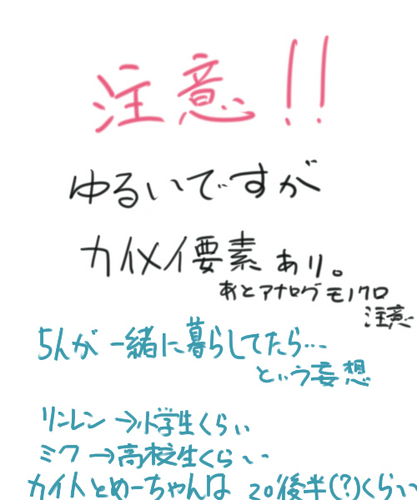 注意!!
ゆるいですが
カイメイ要素あり。
あとアナログモノクロ
注意
5人が一緒に暮らしてたら…
という妄想
リンレン→小学生くらい
ミク→高校生くらい
カイトとめーちゃんは20後半(?)くらい